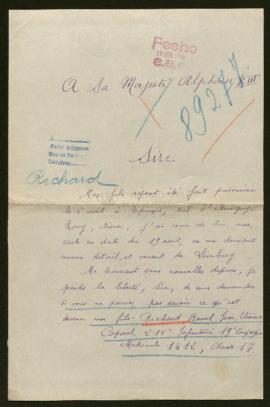 Fecho
A Sa Majesté Alphonse XIII
89277
Sire
Richard
Mon fils ayant été fait prisonnier
le 6 avril à
j'ai reçu de lui une
carte en date du 19 août, ne me donnant
aucun détail, et venant de Limburg
Me trouvant sans nouvelles depuis, je
prends la liberté, Sire, de vous demander
si vous ne pourriez pas savoir ce qu'est
devenu mon fils Richard Raoul, Jean, Etienne
Caporal 215e Infanterie 19e Compagnie
Matricule 1412, Classe 17.